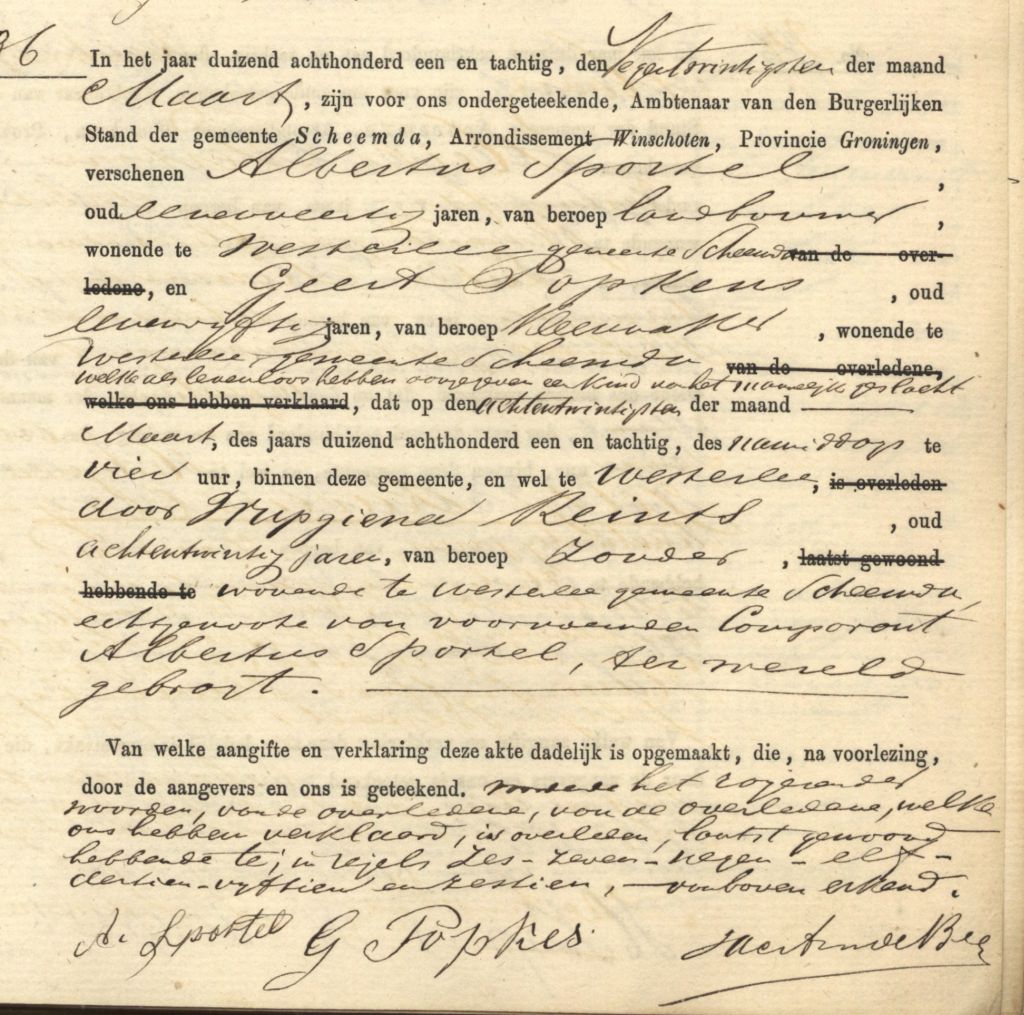 36
In het jaar duizend achthonderd een en tachtig, den Negentwintigsten der maand
Maart, zijn voor ons ondergeteekende, Ambtenaar van den Burgerlijken
Stand der gemeente Scheemda, Arrondissement Winschoten, Provincie Groningen,
verschenen Albertus Sportel,
oud eenenveertig jaren, van beroep landbouwer,
wonende te Westerlee gemeente Scheemda van de over-
ledene, en Geert Popkens, oud
eenenvijftig jaren, van beroep Kleermaker, wonende te
Westerlee, gemeente Scheemda van de overledene,
welke als levenloos hebben aangegeven een kind van het mannelijk geslacht
welke ons hebben verklaard, dat op den achtentwintigsten der maand
Maart, des jaars duizend achthonderd een en tachtig, des namiddags te
vier uur, binnen deze gemeente, en wel te Westerlee, is overleden
door Reints, oud
achtentwintig jaren, van beroep zonder, laatst gewoond
hebbende te wonende te Westerlee gemeente Scheemda,
echtgenoote van voornoemden Comparant
Albertus Sportel, ter wereld
gebragt.
Van welke aangifte en verklaring deze akte dadelijk is opgemaakt, die, na voorlezing,
door de aangevers en ons is geteekend. het rojeren der
woorden, van de overledene, van de overledene, welke
ons hebben verklaard, is overleden, laatst gewoond
hebbende te, in regels zes- zeven- negen- elf-
dertien- vyftien en zestien, van boven erkend.
A. Sportel G Popkes